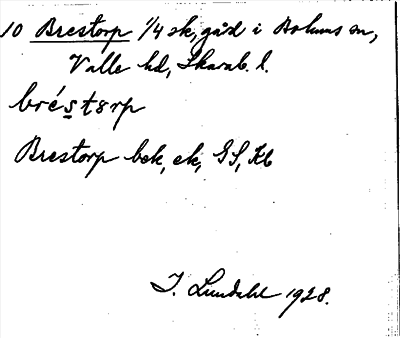 10 Brestorp 1/4 sk, gård i Bolums sn,
Valle hd, Skarab. l.
bréstɵrp
Brestorp bek, ek, GS, Kb
I. Lundahl 1928.